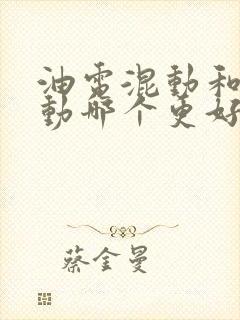 油電混動和
動哪个更好
蔡金曼